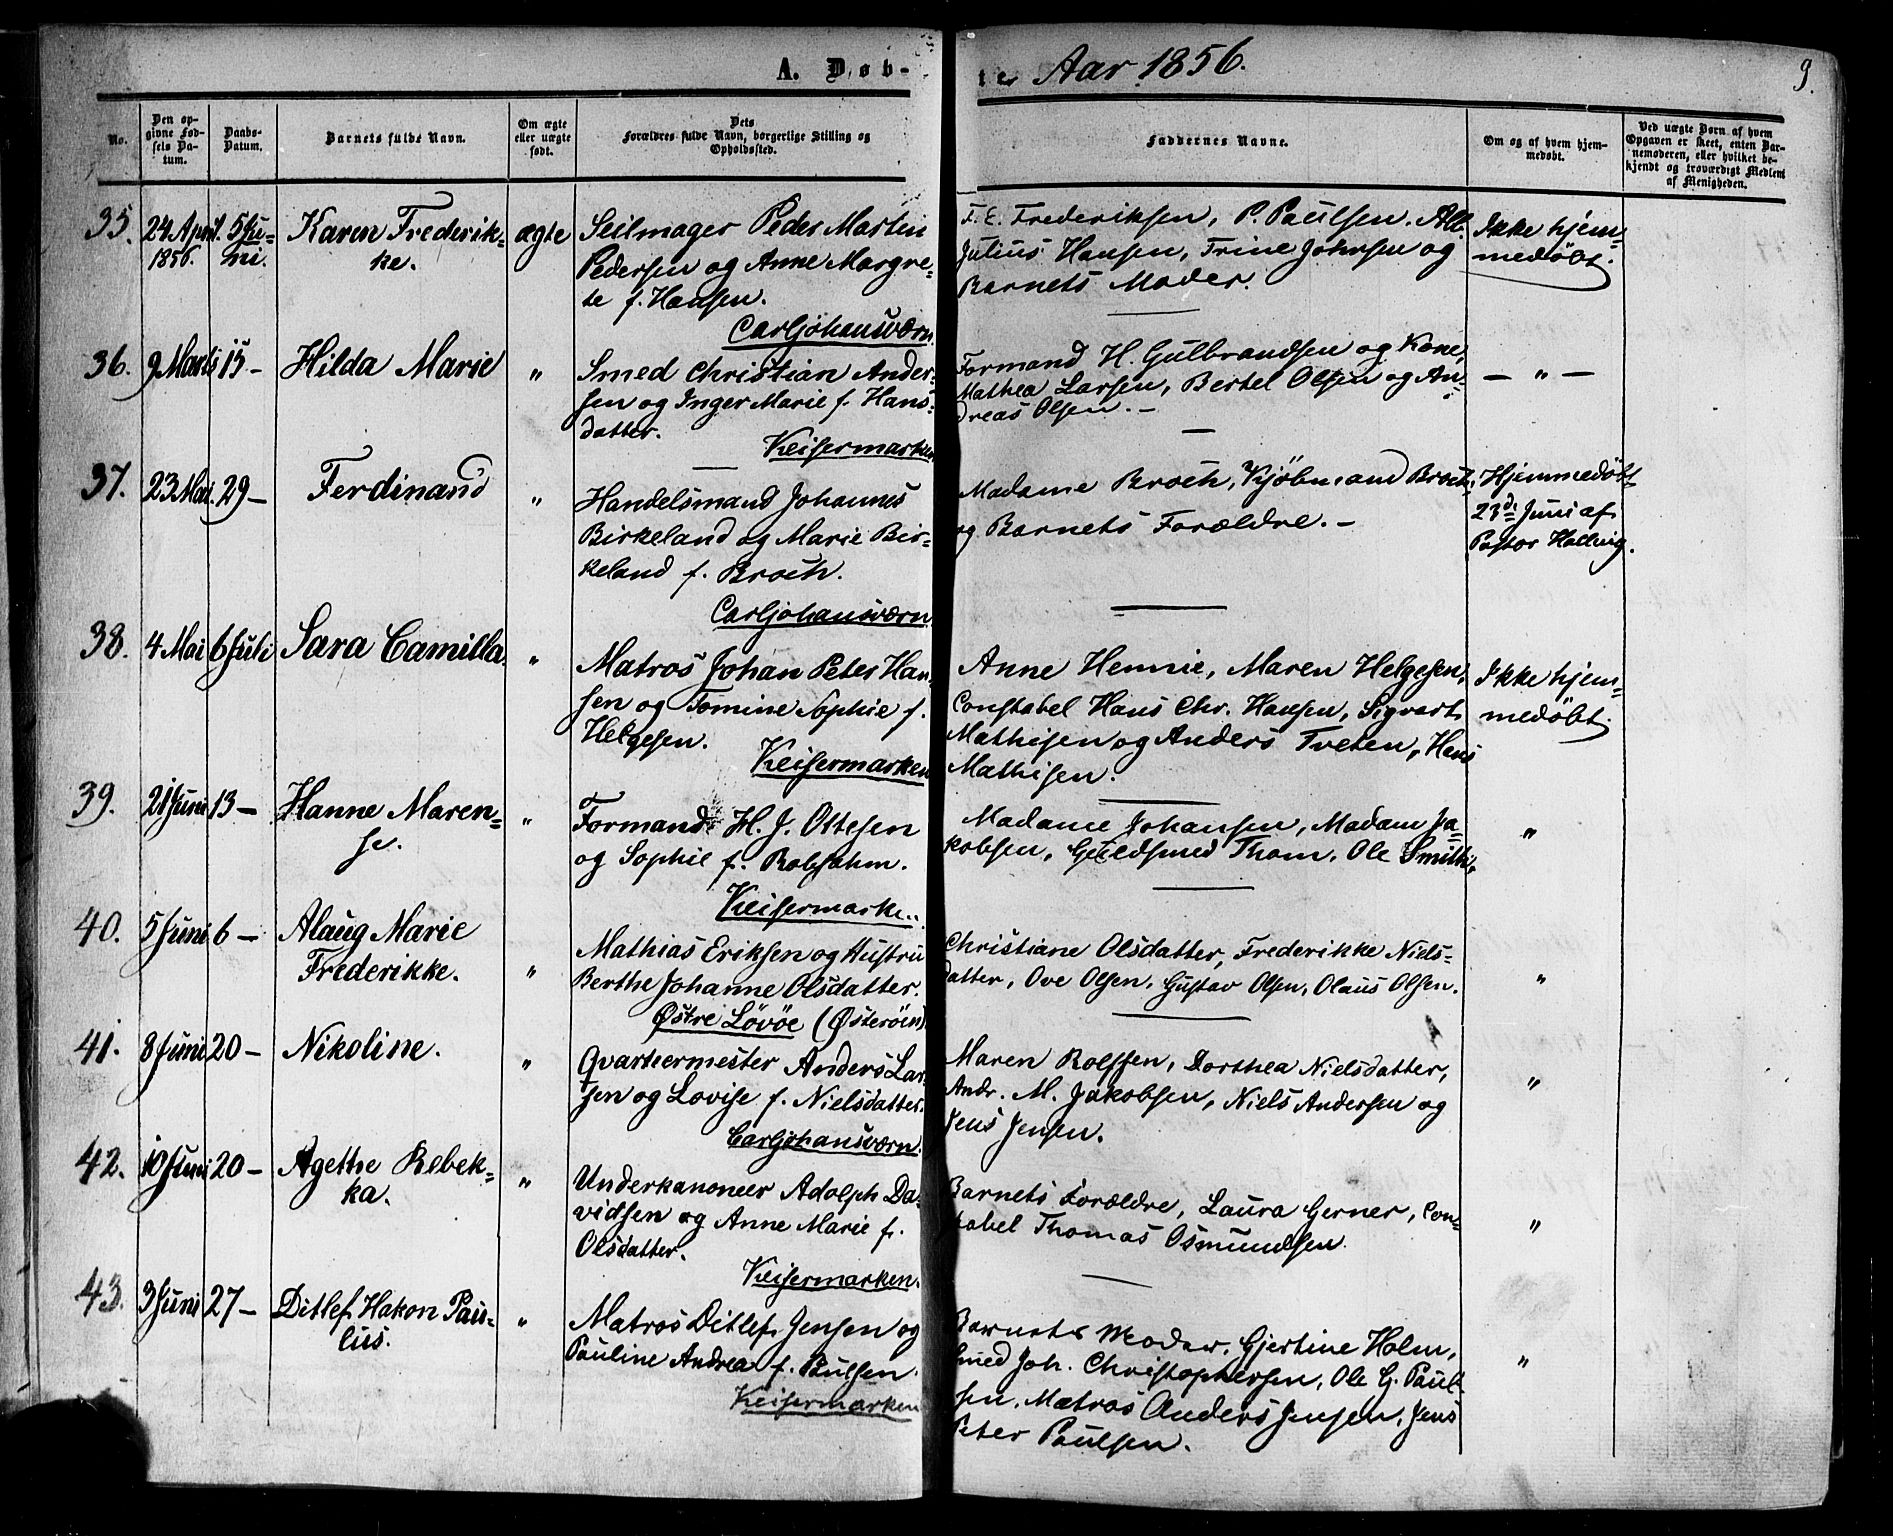 A. Døb-
te Aar 1856.
9.
No.
Den op-
givne Fød-
sels Da-
tum.
Daabs-
Datum.
Barnets fulde Navn.
Om ægte
eller uægte
født.
Dets
Forældres fulde Navn, borgerlige Stilling og
Opholdssted.
Faddernes Navne.
Om og af hvem hjem-
medøbt.
Ved uægte Børn af hvem
Opgaven er skeet, enten Bar-
nemoderen, eller hvilket be-
kjendt og troværdigt Medlem
af Menigheden.
35.
24 April
1856.
5 Ju-
ni.
Karen Frederik-
ke.
ægte
Seilmager Peder Martin
Pedersen og Anne Margre-
te f. Hansen.
Carljohansværn
F. E. Frederiksen, P. Paulsen, Alb.
Julius Hansen, Trine Johnsen og
Barnets Moder.
Ikke hjem-
medøbt.
36.
9 Marts
15 –
Hilda Marie
"
Smed Christian Ander-
sen og Inger Marie f. Hans-
datter.
Keisermarken
Formand H. Gulbrandsen og Kone,
Mathea Larsen, Bertel Olsen og An-
dreas Olsen. –
– " –
37.
23 Mai
29 –
Ferdinand
"
Handelsmand Johannes
Birkeland og Marie Bir-
keland f. Broch.
Carljohansværn
Madame Broch, Kjøbmand Broch,
og Barnets Forældre. –
Hjemmedøbt
23de Juni af
Pastor Hallig.
38.
4 Mai
6 Juli
Sara Camilla.
"
Matros Johan Peter Han-
sen og Tomine Sophie f.
Helgesen.
Keisermarken
Anne Hennie, Maren Helgesen,
Constabel Hans Chr. Hansen, Sigvart
Mathisen og Anders Tveten, Hans
Mathisen.
Ikke hjem-
medøbt.
39.
21 Juni
13 –
Hanne Maren-
se.
"
Formand H. J. Ottesen
og Sophie f. Robsahm.
Keisermarke..
Madame Johansen, Madam Ja-
kobsen, Guldsmed Thom, Ole Smith,
"
40.
5 Juni
6 –
Alaug Marie
Frederikke.
"
Mathias Eriksen og Hustru
Berthe Johanne Olsdatter.
Østre Løvøe (Østerøen)
Christiane Olsdatter, Frederikke Niels-
datter, Ove Olsen, Gustav Olsen, Olaus Olsen.
"
41.
8 Juni
20 –
Nikoline.
"
Qvarteermester Anders Lar-
sen og Lovise f. Nielsdatter.
Carljohansværn.
Maren Rolfsen, Dorthea Nielsdatter,
Andr. M. Jakobsen, Niels Andersen og
Jens Jensen.
"
42.
10 Juni
20 –
Agethe Rebek-
ka.
"
Underkanoneer Adolph Da-
vidsen og Anne Marie f.
Olsdatter.
Keisermarken.
Barnets Forældre, Laura Gerner, Con-
stabel Thomas Osmundsen.
"
43.
3 Juni
27 –
Ditlef Hakon Pau-
lus.
"
Matros Ditlef Jensen og
Pauline Andrea f. Paulsen.
Keisermarken
Barnets Moder, Gjertine Holm,
Smed Joh. Christophersen, Ole G. Paul-
sen, Matros Anders Jensen, Jens
Peter Paulsen.
"